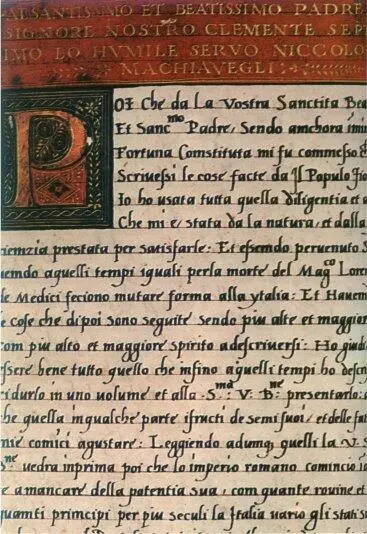 AL SANTISSIMO ET BEATISSIMO PADRE
SIGNORE NOSTRO CLEMENTE SEP
IMO LO HVMILE SERVO NICCOLO
MACHIAVEGLI
POI Che da La Vostra Sanctita Bea
Et Sanc.mo Padre, Sendo anchora in mi
Fortuna Constituta mi fu commesso
Scrivessi le cose facte da Il Populo Fio
Io ho usata tutta quella diligentia et a
Che mi e, stata da la natura, et dalla
rienzia prestata per satisfarle: Et essendo pervenuto S
uendo a quelli tempi i quali per la morte del Mag.co Loren
de Medici feciono mutare forma alla ytalia: Et Havem
e cose che di poi sono seguite sendo piu alte et maggior
com piu alto et maggiore spirito a descriversi: Ho giudi
essere bene tutto quello che infino a quelli tempi ho descri
ridurlo in uno volume et alla .S.ma V. B.ne presentarlo:
che quella in qualche parte i fructi de semi suoi, et delle fat
mie comici a gustare: Leggendo adumq quelli la V. S
.ne vedra inprima poi che lo imperio romano comincio
e a mancare della potentia sua, con quante rovine et
quanti principi per piu seculi la Italia vario gli stati s